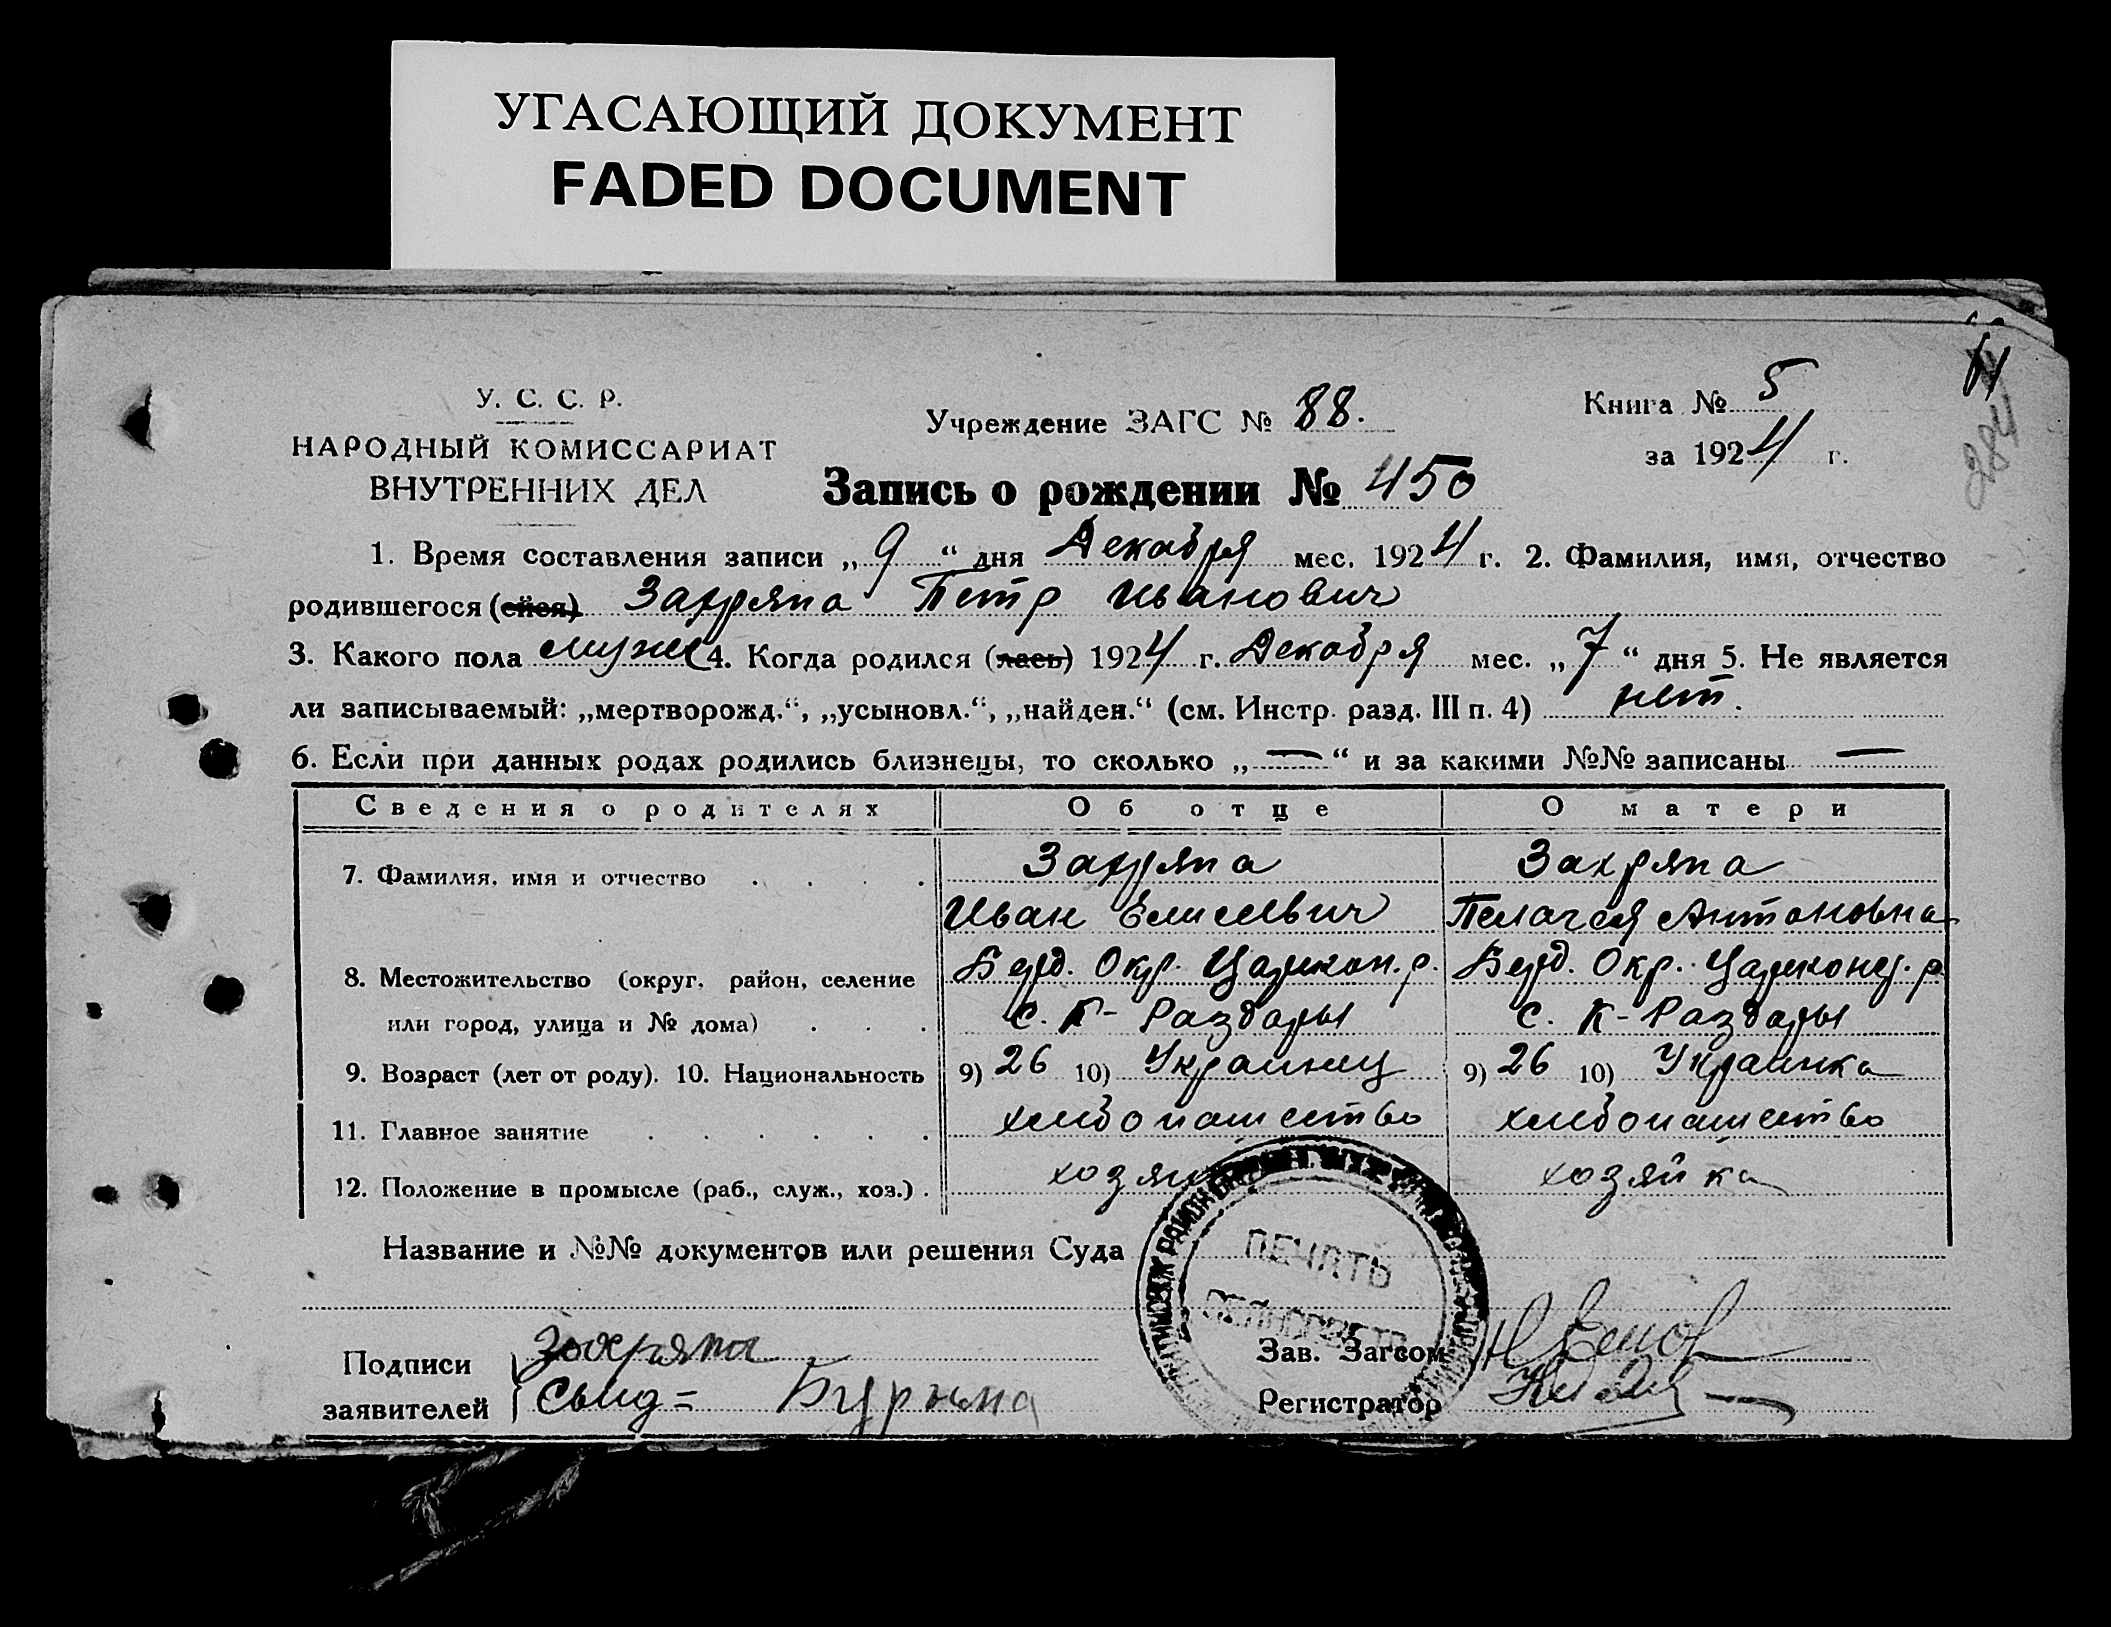 УГАСАЮЩИЙ ДОКУМЕНТ
FADED DOCUMENT
У. С. С. Р.
НАРОДНЫЙ КОМИССАРИАТ
ВНУТРЕННИХ ДЕЛ
Учреждение ЗАГС № 88.
Книга № 5
за 1924 г.
284
Запись о рождении № 450
1. Время составления записи „9“ дня Декабря мес. 1924 г. 2. Фамилия, имя, отчество
родившегося (ейся) Захряпа Петр Иванович
3. Какого пола муж 4. Когда родился (лась) 1924 г. Декабря мес. „7“ дня 5. Не является
ли записываемый: „мертворожд.“, „усыновл.“, „найден.“ (см. Инстр. разд. III п. 4) нет.
6. Если при данных родах родились близнецы, то сколько „—“ и за какими №№ записаны —
Сведения о родителях Об отце О матери
7. Фамилия, имя и отчество . . . . Захряпа Захряпа
Иван Елисеевич Пелагея Антоновна
8. Местожительство (округ, район, селение Берд. Окр. Царекон. р. Берд. Окр. Цареконс. р.
или город, улица и № дома) . . . с. К-Раздоры с. К-Раздоры
9. Возраст (лет от роду). 10. Национальность 9) 26 10) Украинец 9) 26 10) Украинка
11. Главное занятие . . . . . . хлебопашество хлебопашество
12. Положение в промысле (раб., служ., хоз.) . хозяин хозяйка
Название и №№ документов или решения Суда
ПЕЧАТЬ
Подписи Захряпа Зав. Загсом
заявителей Свид= Регистратор